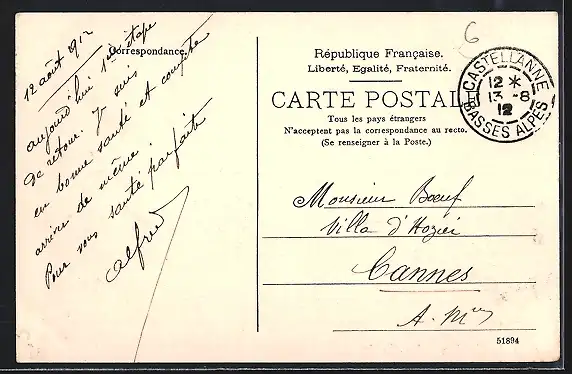 Correspondance.
12 août 1912
aujourd'hui 1ère étape
de retour. Je suis
en bonne santé et compte
arriver de même.
Pour vous santé parfaite
Alfred
République Française.
Liberté, Egalité, Fraternité.
CARTE POSTALE
Tous les pays étrangers
N'acceptent pas la correspondance au recto.
(Se renseigner à la Poste.)
6
CASTELLANNE
12 *
13 -8
12
BASSES ALPES
Monsieur Bœuf
Villa d'Hozier
Cannes
A. Mmes
51894